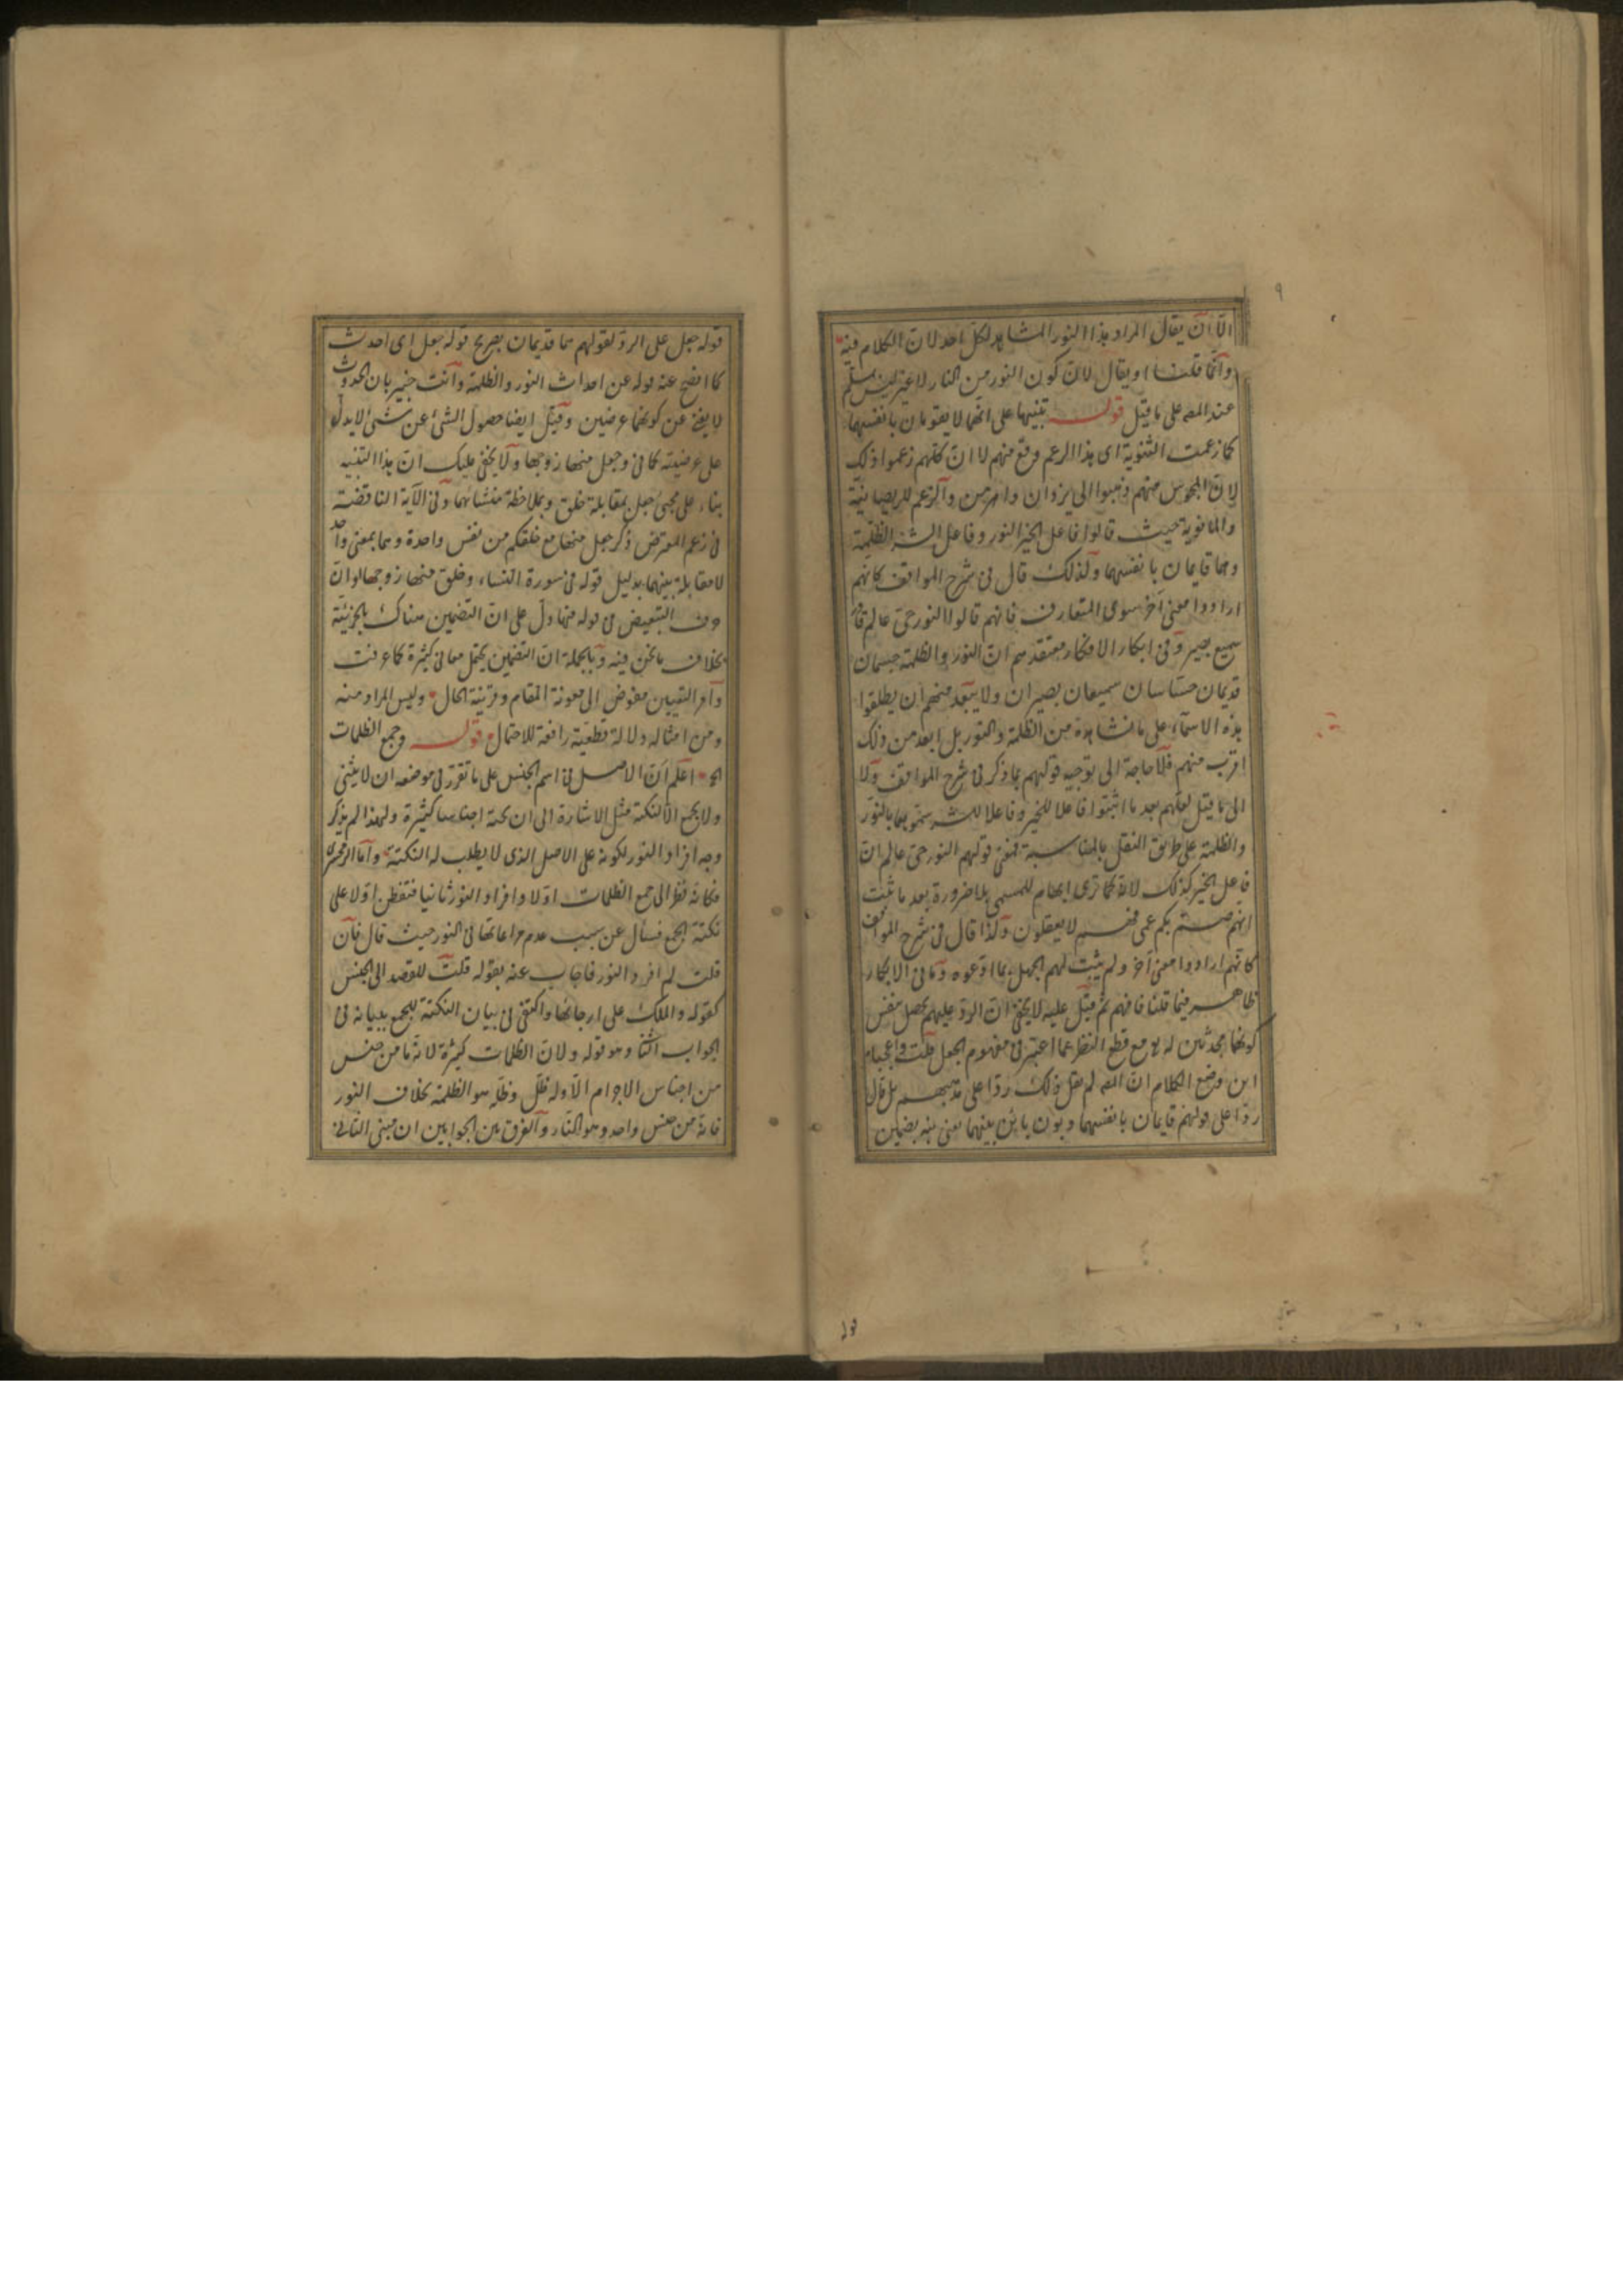 ٩
الّا ان يقال المراد هذا النور المشاهد لكل احد لان الكلام فيه
وانّما قلنا او يقال لان كون النور من النار لا غير ليس بمسلم
عند المص على ما قيل قوله تنبيها على انّهما لا يقومان بانفسهما
كما زعمت الثنوية اى هذا الزعم وقع منهم لا ان كلهم زعموا ذلك
لان المجوس منهم ذهبوا الى يزدان واهرمن والزعم للديصانيّة
والمانوية حيث قالوا فاعل الخير النور وفاعل الشر الظلمة
وهما قايمان بانفسهما ولذلك قال فى شرح المواقف كانهم
ارادوا معنى آخر سوى المتعارف فانهم قالوا النور حىّ عالم قادر
سميع بصير وفى ابكار الافكار معتقدهم ان النور والظلمة جسمان
قديمان حسّاسان سميعان بصيران ولا يبعد منهم ان يطلقوا
هذه الاسماء على ما نشاهده من الظلمة والنور بل ابعد من ذلك
اقرب منهم فلا حاجة الى توجيه قولهم بما ذكر فى شرح المواقف ولا
الى ما قيل لعلهم بعد ما اثبتوا فاعلا للخير وفاعلا للشر سموهما بالنور
والظلمة على طريق النقل بالمناسبة فمعنى قولهم النور حىّ عالم ان
فاعل الخير كذلك لانه كما ترى ابهام للمسمى بلا ضرورة بعد ما ثبت
انهم صمّ بكم عمى فهم لا يعقلون ولذا قال فى شرح المواقف
كانّهم ارادوا معنى آخر ولم يثبت لهم الجهل بما ادّعوه وما فى الابكار
ظاهر فيما قلنا فافهم ثم قيل عليه لا يخفى ان الردّ عليهم يحصل بنفس
كونهما محدثين له مع قطع النظر عما اعتبر فى مفهوم الجعل قلت واعجباه
اين وضع الكلام ان المص لم يقل ذلك ردّا على مذهبهم بل قال
ردّا على قولهم قايمان بانفسهما وبون باين بينهما يعنى نبّه بتضمين
قوله
قوله جعل على الردّ لقولهم هما قديمان بصريح قوله جعل اى احدث
كما افصح عنه قوله عن احداث النور والظلمة وانت خبير بان الحدوث
لا يغنى عن كونهما عرضين وقيل ايضا حصول الشئ عن شئ لا يدل
على عرضيته كما فى وجعل منها زوجها ولا يخفى عليك ان هذا التنبيه
بناء على مجئ جعل بمقابلة خلق وبملاحظة منشائهما وفى الآية الناقضة
فى زعم المعترض ذكر جعل منها مع خلقكم من نفس واحدة وهما بمعنى واحد
لا مقابلة بينهما بدليل قوله فى سورة النساء وخلق منها زوجها لو ان
حرف التبعيض فى قوله منها دلّ على ان التضمين هناك بالجزئية
بخلاف ما نحن فيه وبالجملة ان التضمين يحتمل معانى كثيرة كما عرفت
وامر التعيين مفوض الى معونة المقام وقرينة الحال وليس المراد منه
ومن امثاله دلالة قطعية رافعة للاحتمال قوله وجمع الظلمات
الخ اعلم ان الاصل فى اسم الجنس على ما تقرر فى موضعه ان لا يثنى
ولا يجمع الا لنكتة مثل الاشارة الى ان تحته اجناسا كثيرة ولهذا لم يذكر
وجه افراد النور لكونه على الاصل الذى لا يطلب له النكتة وامّا الزمخشرى
فكانه نظر الى جمع الظلمات اولا وافراد النور ثانيا فتفطن اولا على
نكتة الجمع فسأل عن سبب عدم مراعاتها فى النور حيث قال فان
قلت لم افرد النور فاجاب عنه بقوله قلت للقصد الى الجنس
كقوله والملك على ارجائها واكتفى فى بيان النكتة للجمع ببيانه فى
الجواب الثا وهو قوله ولان الظلمات كثيرة لانه ما من جنس
من اجناس الاجرام الا وله ظل وظله هو الظلمة بخلاف النور
فانه من جنس واحد وهو النار والفرق بين الجوابين ان مبنى الثانى